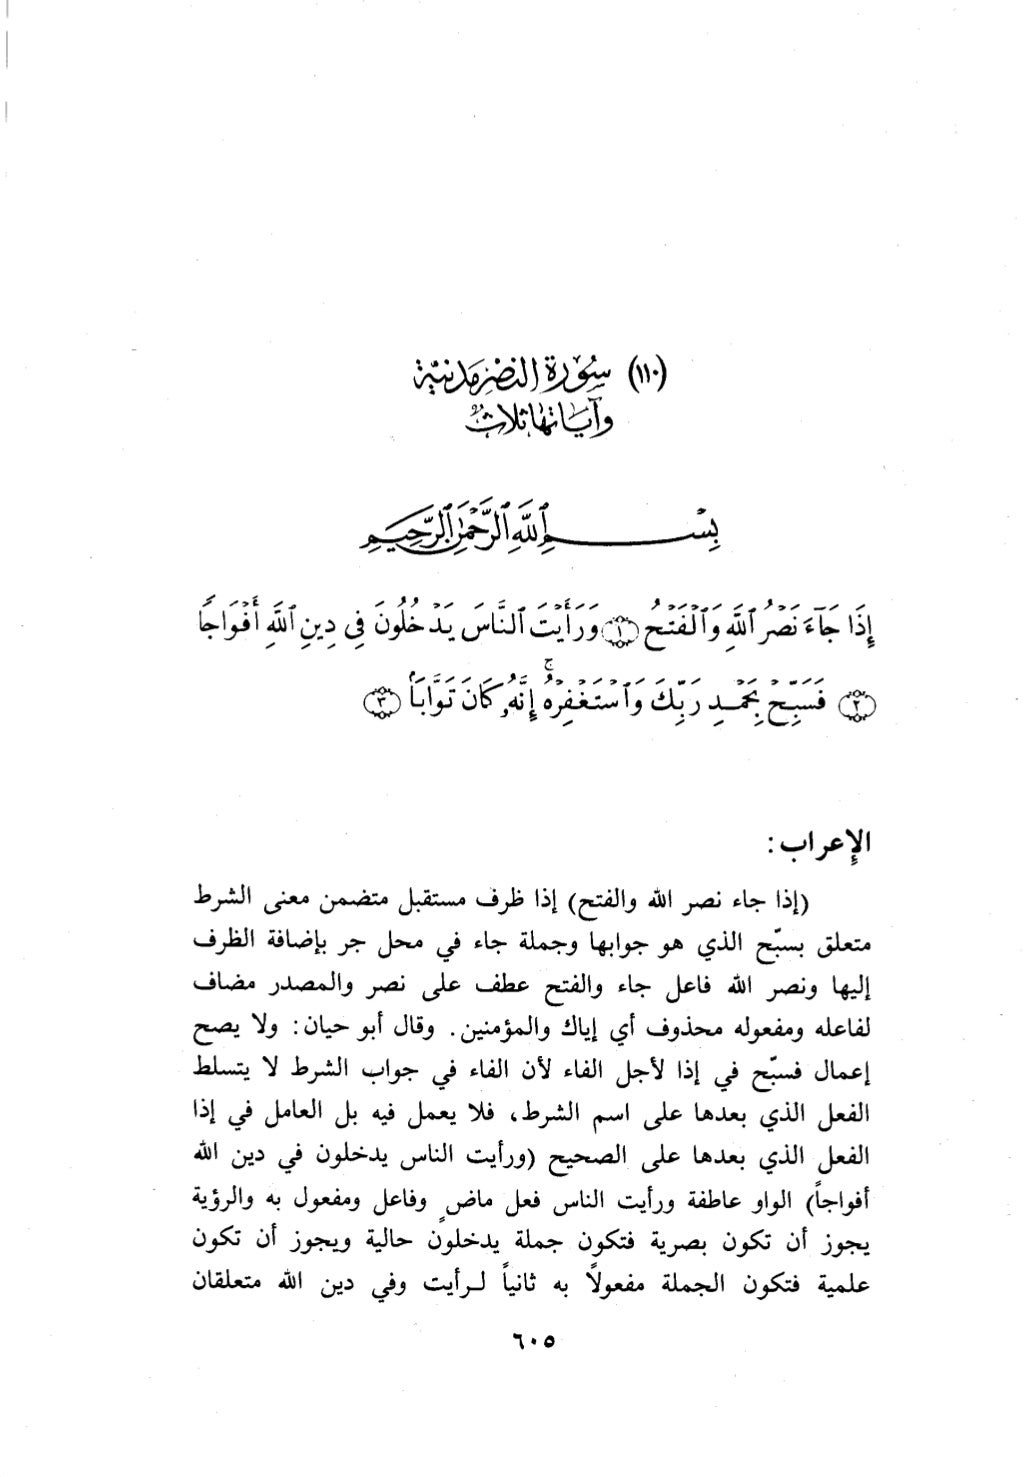 (١١٠) سُورَة النصْر مَدنيّة
وآيَاتها ثلاثٌ
بِسْمِ ٱللَّهِ ٱلرَّحْمَٰنِ ٱلرَّحِيمِ
إِذَا جَآءَ نَصْرُ ٱللَّهِ وَٱلْفَتْحُ ١ وَرَأَيْتَ ٱلنَّاسَ يَدْخُلُونَ فِى دِينِ ٱللَّهِ أَفْوَاجًا
٢ فَسَبِّحْ بِحَمْدِ رَبِّكَ وَٱسْتَغْفِرْهُ ۚ إِنَّهُۥ كَانَ تَوَّابًۢا ٣
الإعراب :
(إذا جاء نصر الله والفتح) إذا ظرف مستقبل متضمن معنى الشرط
متعلق بسبّح الذي هو جوابها وجملة جاء في محل جر بإضافة الظرف
إليها ونصر الله فاعل جاء والفتح عطف على نصر والمصدر مضاف
لفاعله ومفعوله محذوف أي إياك والمؤمنين. وقال أبو حيان: ولا يصح
إعمال فسبّح في إذا لأجل الفاء لأن الفاء في جواب الشرط لا يتسلط
الفعل الذي بعدها على اسم الشرط، فلا يعمل فيه بل العامل في إذا
الفعل الذي بعدها على الصحيح (ورأيت الناس يدخلون في دين الله
أفواجاً) الواو عاطفة ورأيت الناس فعل ماضٍ وفاعل ومفعول به والرؤية
يجوز أن تكون بصرية فتكون جملة يدخلون حالية ويجوز أن تكون
علمية فتكون الجملة مفعولاً به ثانياً لـرأيت وفي دين الله متعلقان
٦٠٥